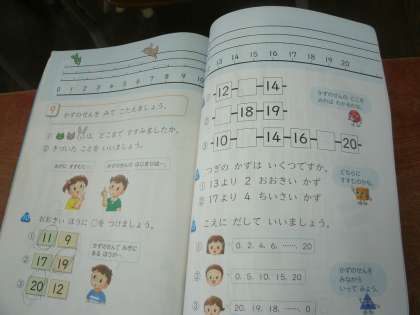 0 1 2 3 4 5 6 7 8 9 10
9
かずのせんを みて こたえましょう。
① は どこまで すすみましたか。
② きづいた ことを いいましょう。
おおきい ほうに ○を つけましょう。
① 11 9
② 17 19
③ 20 12
かずのせんで みぎに
ある ほうが…
12 13 14 15 16 17 18 19 20
12 14
② 18 19
③ 10 14 16 20
かずのせんの どこを
みれば わかるかな。
つぎの かずは いくつですか。
① 13より 2 おおきい かず
② 17より 4 ちいさい かず
どちらに
すすむのかな。
こえに だして いいましょう。
① 0、2、4、6、……、20
② 0、5、10、15、20
③ 20、19、18、……、0
かずのせんを
みながら
いって みよう。